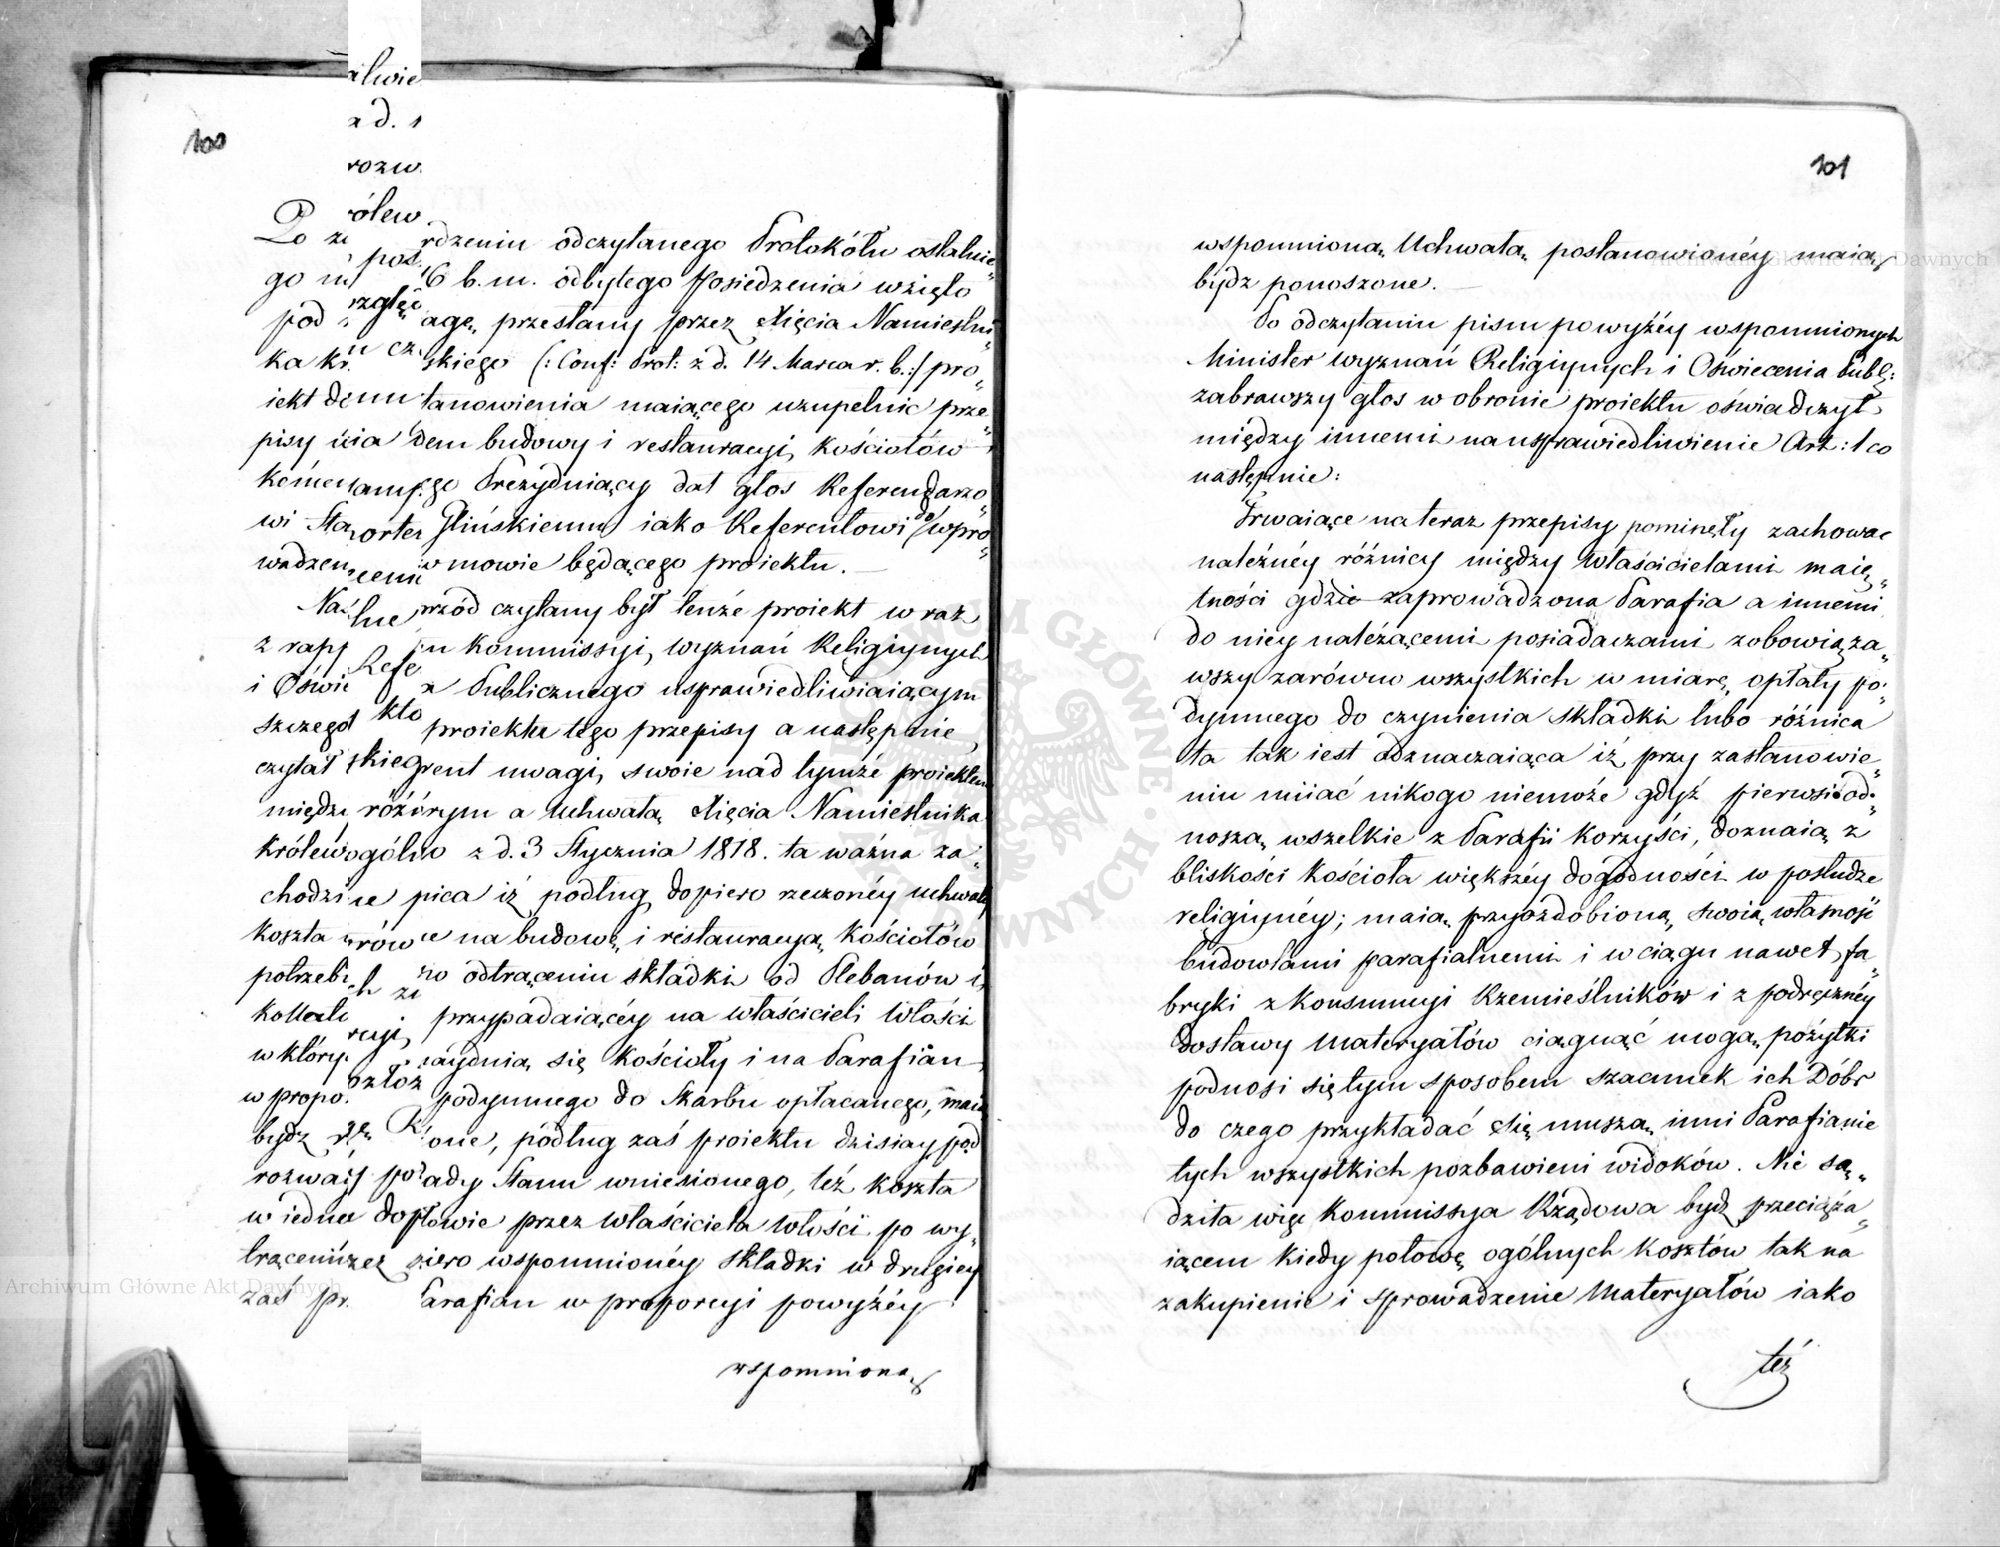 100
Po ze rdzeniu odczytanego Protokółu ostatnie„
go 6 b. m. odbytego Posiedzenia wzięto
pod agę, przesłany przez Xięcia Namiestni„
ka kr skiego (: Conf: Prot: z d. 14 Marca r. b.:) pro„
iekt tanowienia maiącego uzupełnić prze„
pisy dem budowy i restauracyi, kościołów
go Prezyduiący dał głos Referendarzo„
wi Sta Glińskiemu iako Referentowi do wpro„
wadzen w mowie będącego proiektu. —
Na przód czytany był tenże proiekt w raz
z rapp u Kommissyi, wyznań Religiynych
i Oświe a Publicznego usprawiedliwiaiącym
szczegół proiektu tego przepisy a następnie
czytał rent uwagi, swoie nad tymże proiektem
między rym a Uchwałą Xięcia Namiestnika
Królew z d. 3 Stycznia 1818. ta ważna za„
chodzi nica iż podług dopiero rzeczonéy uchwały
koszta e na budowę, i restauracyą, kościołów
potrzeb po odtrąceniu składki od Plebanów i
Kollat przypadaiącéy na właścicieli Włości
w który nayduią się kościoły i na Parafian
w propo podymnego do Skarbu opłacanego, maią
bydz one, podług zaś proiektu dzisiay pod
rozwa ady Stanu wniesionego, też koszta
w iedne łowie przez właściciela włości po wy„
trąceni piero wspomnionéy składki w drugiey
zaś pr Parafian w proporcyi powyżéy
wspomnioną
ilwie
z d. 1
rozw
ólew
pos
zglę
cz
Refe
kto
skieg
równ
ch
cyi,
ozłoż
101
wspomnioną, Uchwałą, postanowionéy maią,
bydz ponoszone. —
Po odczytaniu pism powyżéy wspomnionych
Minister wyznań Religiynych i Oświecenia Publ:
zabrawszy głos w obronie proiektu oświadczył
między innemi na usprawiedliwienie Art: 1 co
następnie:
Trwaiące na teraz przepisy pominęły zachować
należnéy różnicy między Właścicielami maię„
tności gdzie zaprowadzona Parafia a innemi
do niey należącemi posiadaczami zobowiąza„
wszy zarówno wszystkich w miarę, opłaty po„
dymnego do czynienia składki lubo różnica
ta tak iest odznaczaiąca iż, przy zastanowie„
niu miiać nikogo niemoże gdyż pierwsi od„
noszą, wszelkie z Parafii korzyści, doznaią z
bliskości Kościoła większéy dogodności w posłudze
religiynéy; maią przyozdobioną, swoią, własność
budowlami parafialnemi i w ciągu nawet fa„
bryki z konsumcyi Rzemieślników i z podręcznéy
dostawy Materyałów ciągnąć mogą, pożytki
podnosi się tym sposobem szacunek ich Dóbr
do czego przykładać się muszą, inni Parafianie
tych wszystkich pozbawieni widoków. Nie są„
dziła więc Kommissya Rządowa bydź przeciąża„
iącem kiedy połowę ogólnych kosztów tak na
zakupienie i sprowadzenie Materyałów iako
też
Archiwum Główne Akt Dawnych
Archiwum Główne Akt Dawnych